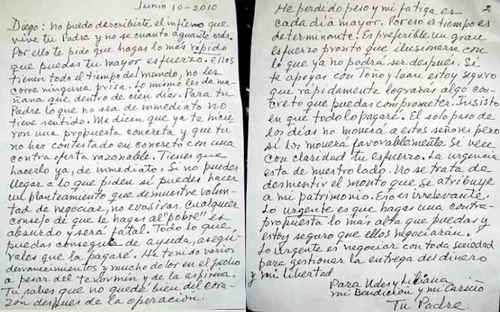 Junio 10-2010
Diego: no puedo describirte el infierno que
vive tu Padre y no se cuanto aguante más.
Por ello te pido que hagas lo más rápido
que puedas tu mayor esfuerzo. Ellos
tienen todo el tiempo del mundo, no les
corre ninguna prisa. Lo mismo les da ma-
ñana que dentro de cien días. Para tu
Padre lo que no sea de inmediato no
tiene sentido. Me dicen que ya te hicie-
ron una propuesta concreta y que tu
no has contestado en concreto con una
contra oferta razonable. Tienes que
hacerlo ya, de inmediato. Si no puedes
llegar a lo que piden si puedes hacer
un planteamiento que demuestre volun-
tad de negociar, no evasivas. Cualquier
consejo de que hagas al "pobre" es
absurdo y será fatal. Todo lo que
puedas conseguir de ayuda, asegú-
rales que la pagaré. He tenido varios
desvanecimientos y mucho dolor en el pecho
a pesar del tevormin y de la espirina.
Tu sabes que no quedé bien del cora-
zón después de la operación.
2
He perdido peso y mi fatiga es
cada día mayor. Por eso el tiempo es
determinante. Es preferible un gran
esfuerzo pronto que ilusionarse con
lo que ya no podrá ser después. Si
te apoyas con Toño y Juan estoy seguro
que rápidamente lograrás algo con-
creto que puedas comprometer. Insiste
en que todo lo pagaré. El solo paso de
los días no moverá a estos señores pero
si los moverá favorablemente si se ve
con claridad tu esfuerzo. La urgencia
esta de nuestro lado. No se trata de
desmentir el monto que se atribuye
a mi patrimonio. Eso es irrelevante.
Lo urgente es que hagas una contra-
propuesta lo mas alta que puedas y
estoy seguro que ellos negociarán.
Lo urgente es negociar con toda seriedad
para gestionar la entrega del dinero
y mi libertad
Para Udes y Liliana
mi Bendición y mi Cariño
Tu Padre.